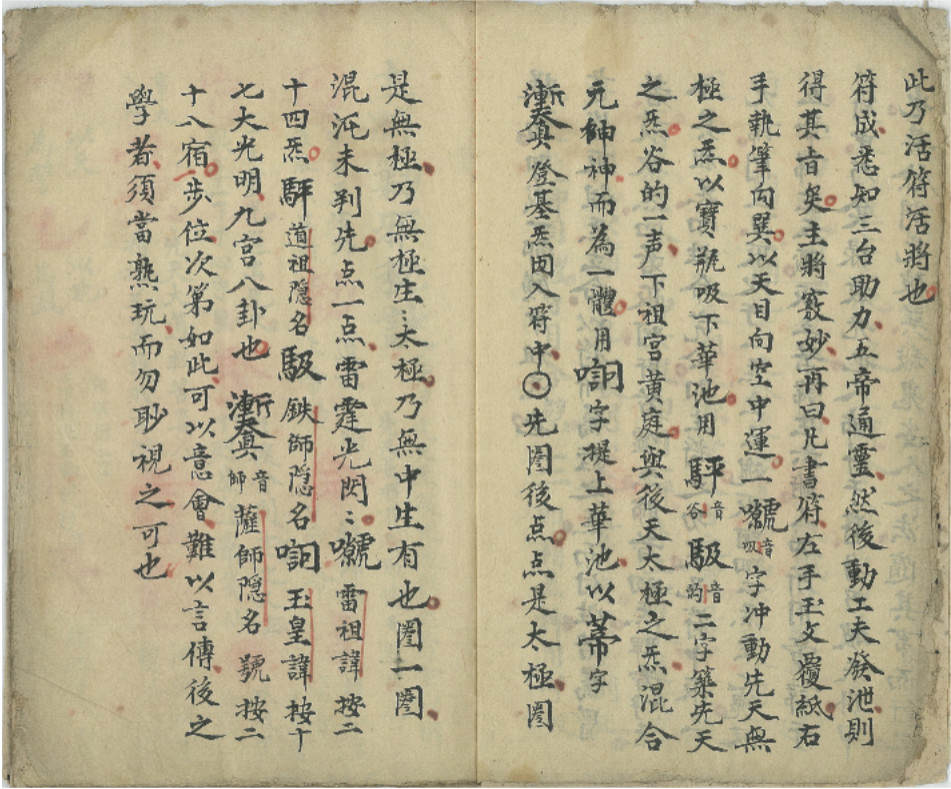 此乃活符活將也
符成悉知三台助力五帝通靈然後動工夫發泄則
得其旨矣主將竅妙再曰凡書符左手玉文覆紙右
手執筆向巽以天目向空中運一嚱音吸字冲動先天無
極之炁以寶瓶吸下華池用𩥮音谷馺音的二字築先天
之炁谷的一声下祖宮黃庭與後天太極之炁混合
元神神而為一體用䦍字提上華池以蒂字
登基炁因入符中☉先圈後点点是太極圈
是無極乃無極生:太極乃無中生有也圈一圈
混沌未判先点一点雷霆光閃:雷祖諱按二
十四炁道祖隱名鉄師隱名玉皇諱按十
七大光明九宮八卦也音師薩師隱名號按二
十八宿步位次第如此可以意會難以言傳後之
學者須當熟玩而勿眇視之可也